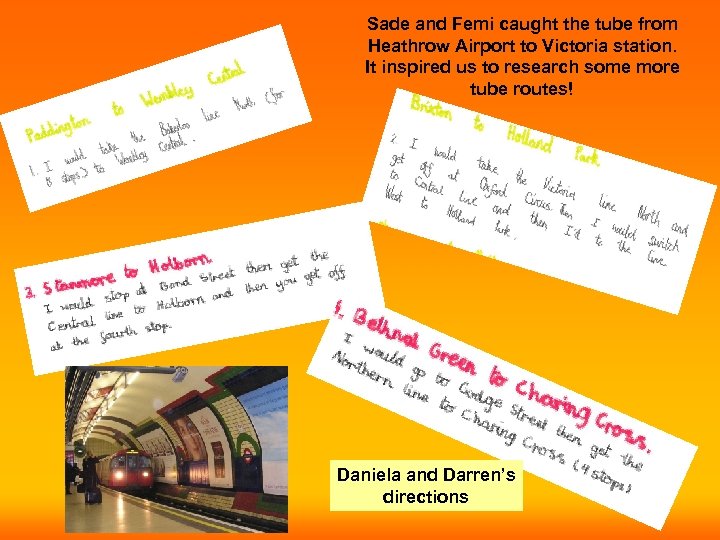 Sade and Femi caught the tube from
Heathrow Airport to Victoria station.
It inspired us to research some more
tube routes!
Paddington to Wembley Central
1. I would take the Bakerloo line North (for
8 stops) to Wembley Central.
Brixton to Holland Park
2. I would take the Victoria line North and
get off at Oxford Circus then I would switch
to Central line and then I'd to the line
West to Holland Park.
3. Stanmore to Holborn.
I would stop at Bond Street then get the
Central line to Holborn and then you get off
at the fourth stop.
Bethnal Green to Charing Cross.
I would go to Goodge Street then get the
Northern line to Charing Cross (4 stops)
Daniela and Darren's
directions